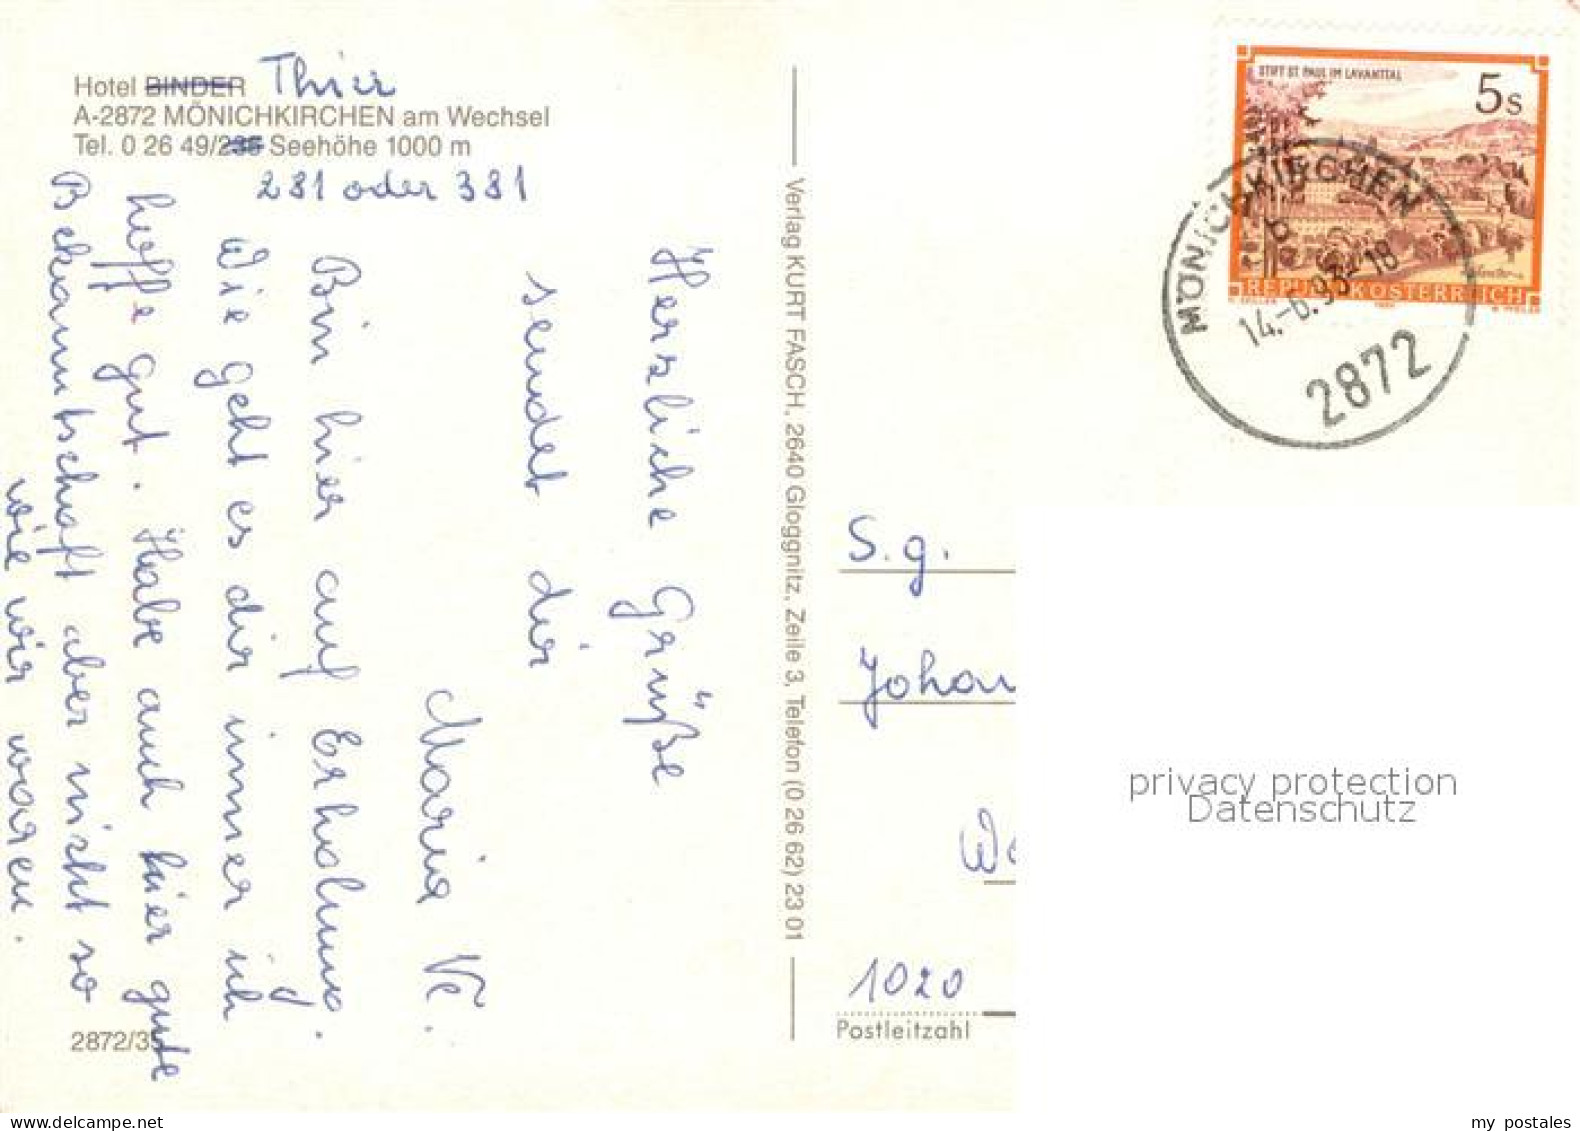 Hotel BINDER Thier
A-2872 MÖNICHKIRCHEN am Wechsel
Tel. 0 26 49/235 Seehöhe 1000 m
281 oder 381
Herzliche Grüße
sendet dir
Maria Ve.
Bin hier auf Erholung.
Wie geht es dir immer ich
hoffe gut. Habe auch hier gute
Bekanntschaft aber nicht so
wie wir waren.
2872/35
Verlag KURT FASCH, 2640 Gloggnitz, Zeile 3, Telefon (0 26 62) 23 01
STIFT ST. PAUL IM LAVANTTAL
5 S
REPUBLIK ÖSTERREICH
MÖNICHKIRCHEN
14.-6.93-18
2872
S. g.
Johan
We
1020
Postleitzahl
privacy protection
Datenschutz
my postales